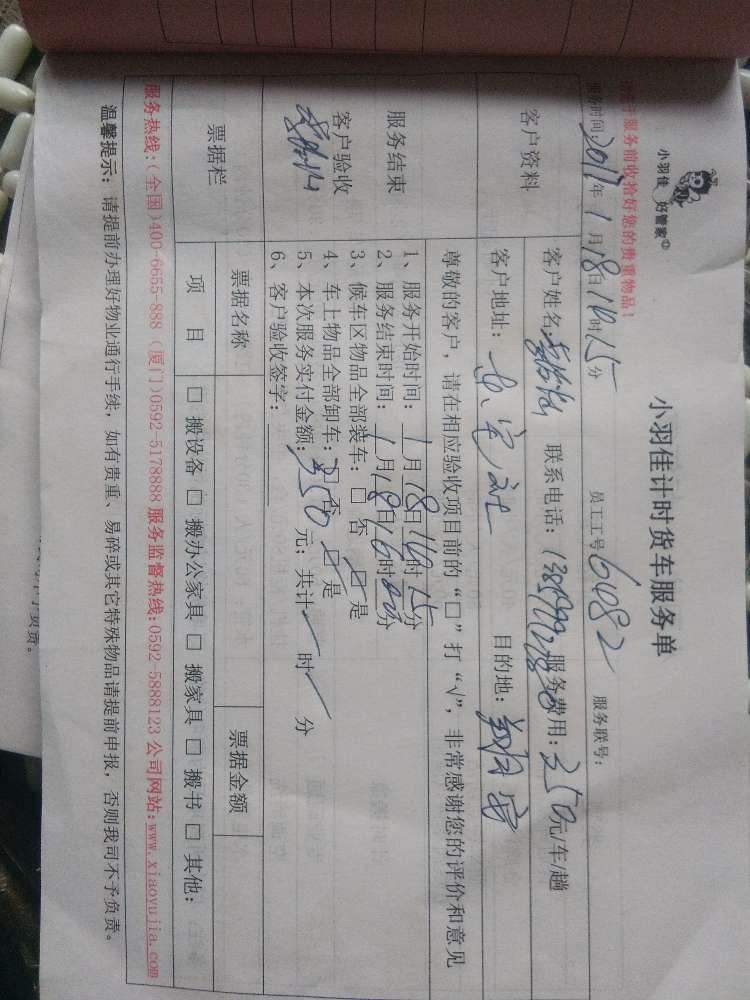 小羽佳 好管家
小羽佳计时货车服务单
服务前收拾好您的贵重物品！
服务时间：2017年1月18日14时15分 员工工号6482 服务联号：
客户资料
客户姓名： 联系电话： 服务费用：350元/车/趟
客户地址： 目的地：
尊敬的客户，请在相应验收项目前的“□”打“√”，非常感谢您的评价和意见
服务结束
客户验收
1、服务开始时间：1月18日14时15分
2、服务结束时间：1月18日16时分
3、候车区物品全部装车：□否 □是
4、车上物品全部卸车：□否 □是
5、本次服务实付金额：350元；共计 时 分
6、客户验收签字：
票据栏
票据名称 票据金额
项目 □搬设备 □搬办公家具 □搬家具 □搬书 □其他：
服务热线：(全国)400-6655-888 (厦门)0592-5178888 服务监督热线：0592-5888123 公司网站：www.xiaoyujia.com
温馨提示：请提前办理好物业通行手续，如有贵重、易碎或其它特殊物品请提前申报，否则我司不予负责。